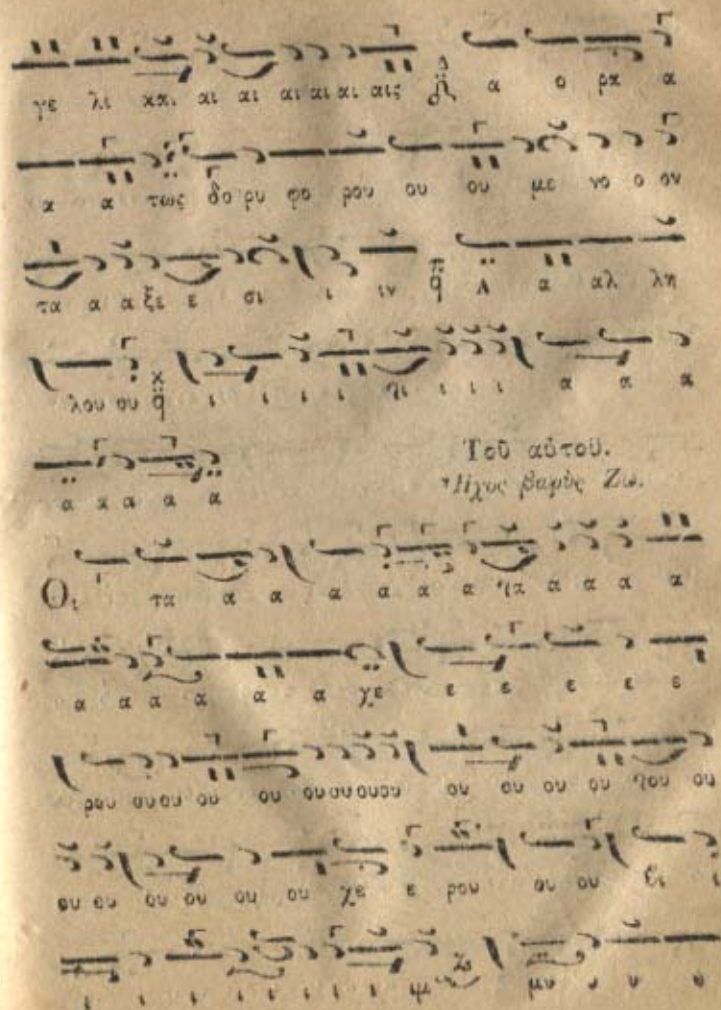 γε λι και αι αι αι αι αι αις α ο ρα α
α α τως δο ρυ φο ρου ου ου με νο ο ον
τα α α ξε ε σι ι ιν Α α αλ λη
λου ου ι ι ι ι ι ι ι α α α
α α α α α
Τοῦ αὐτοῦ.
Ἦχος βαρὺς Ζω.
Οι τα α α α α α α α α α α
α α α α α α χε ε ε ε ε ε
ρου ου ου ου ου ου ου ου ου ου ου ου ου ου
ου ου ου ου ου ου χε ε ρου ου ου ει ι
ι ι ι ι ι ι ι ι μυ υ υ υ